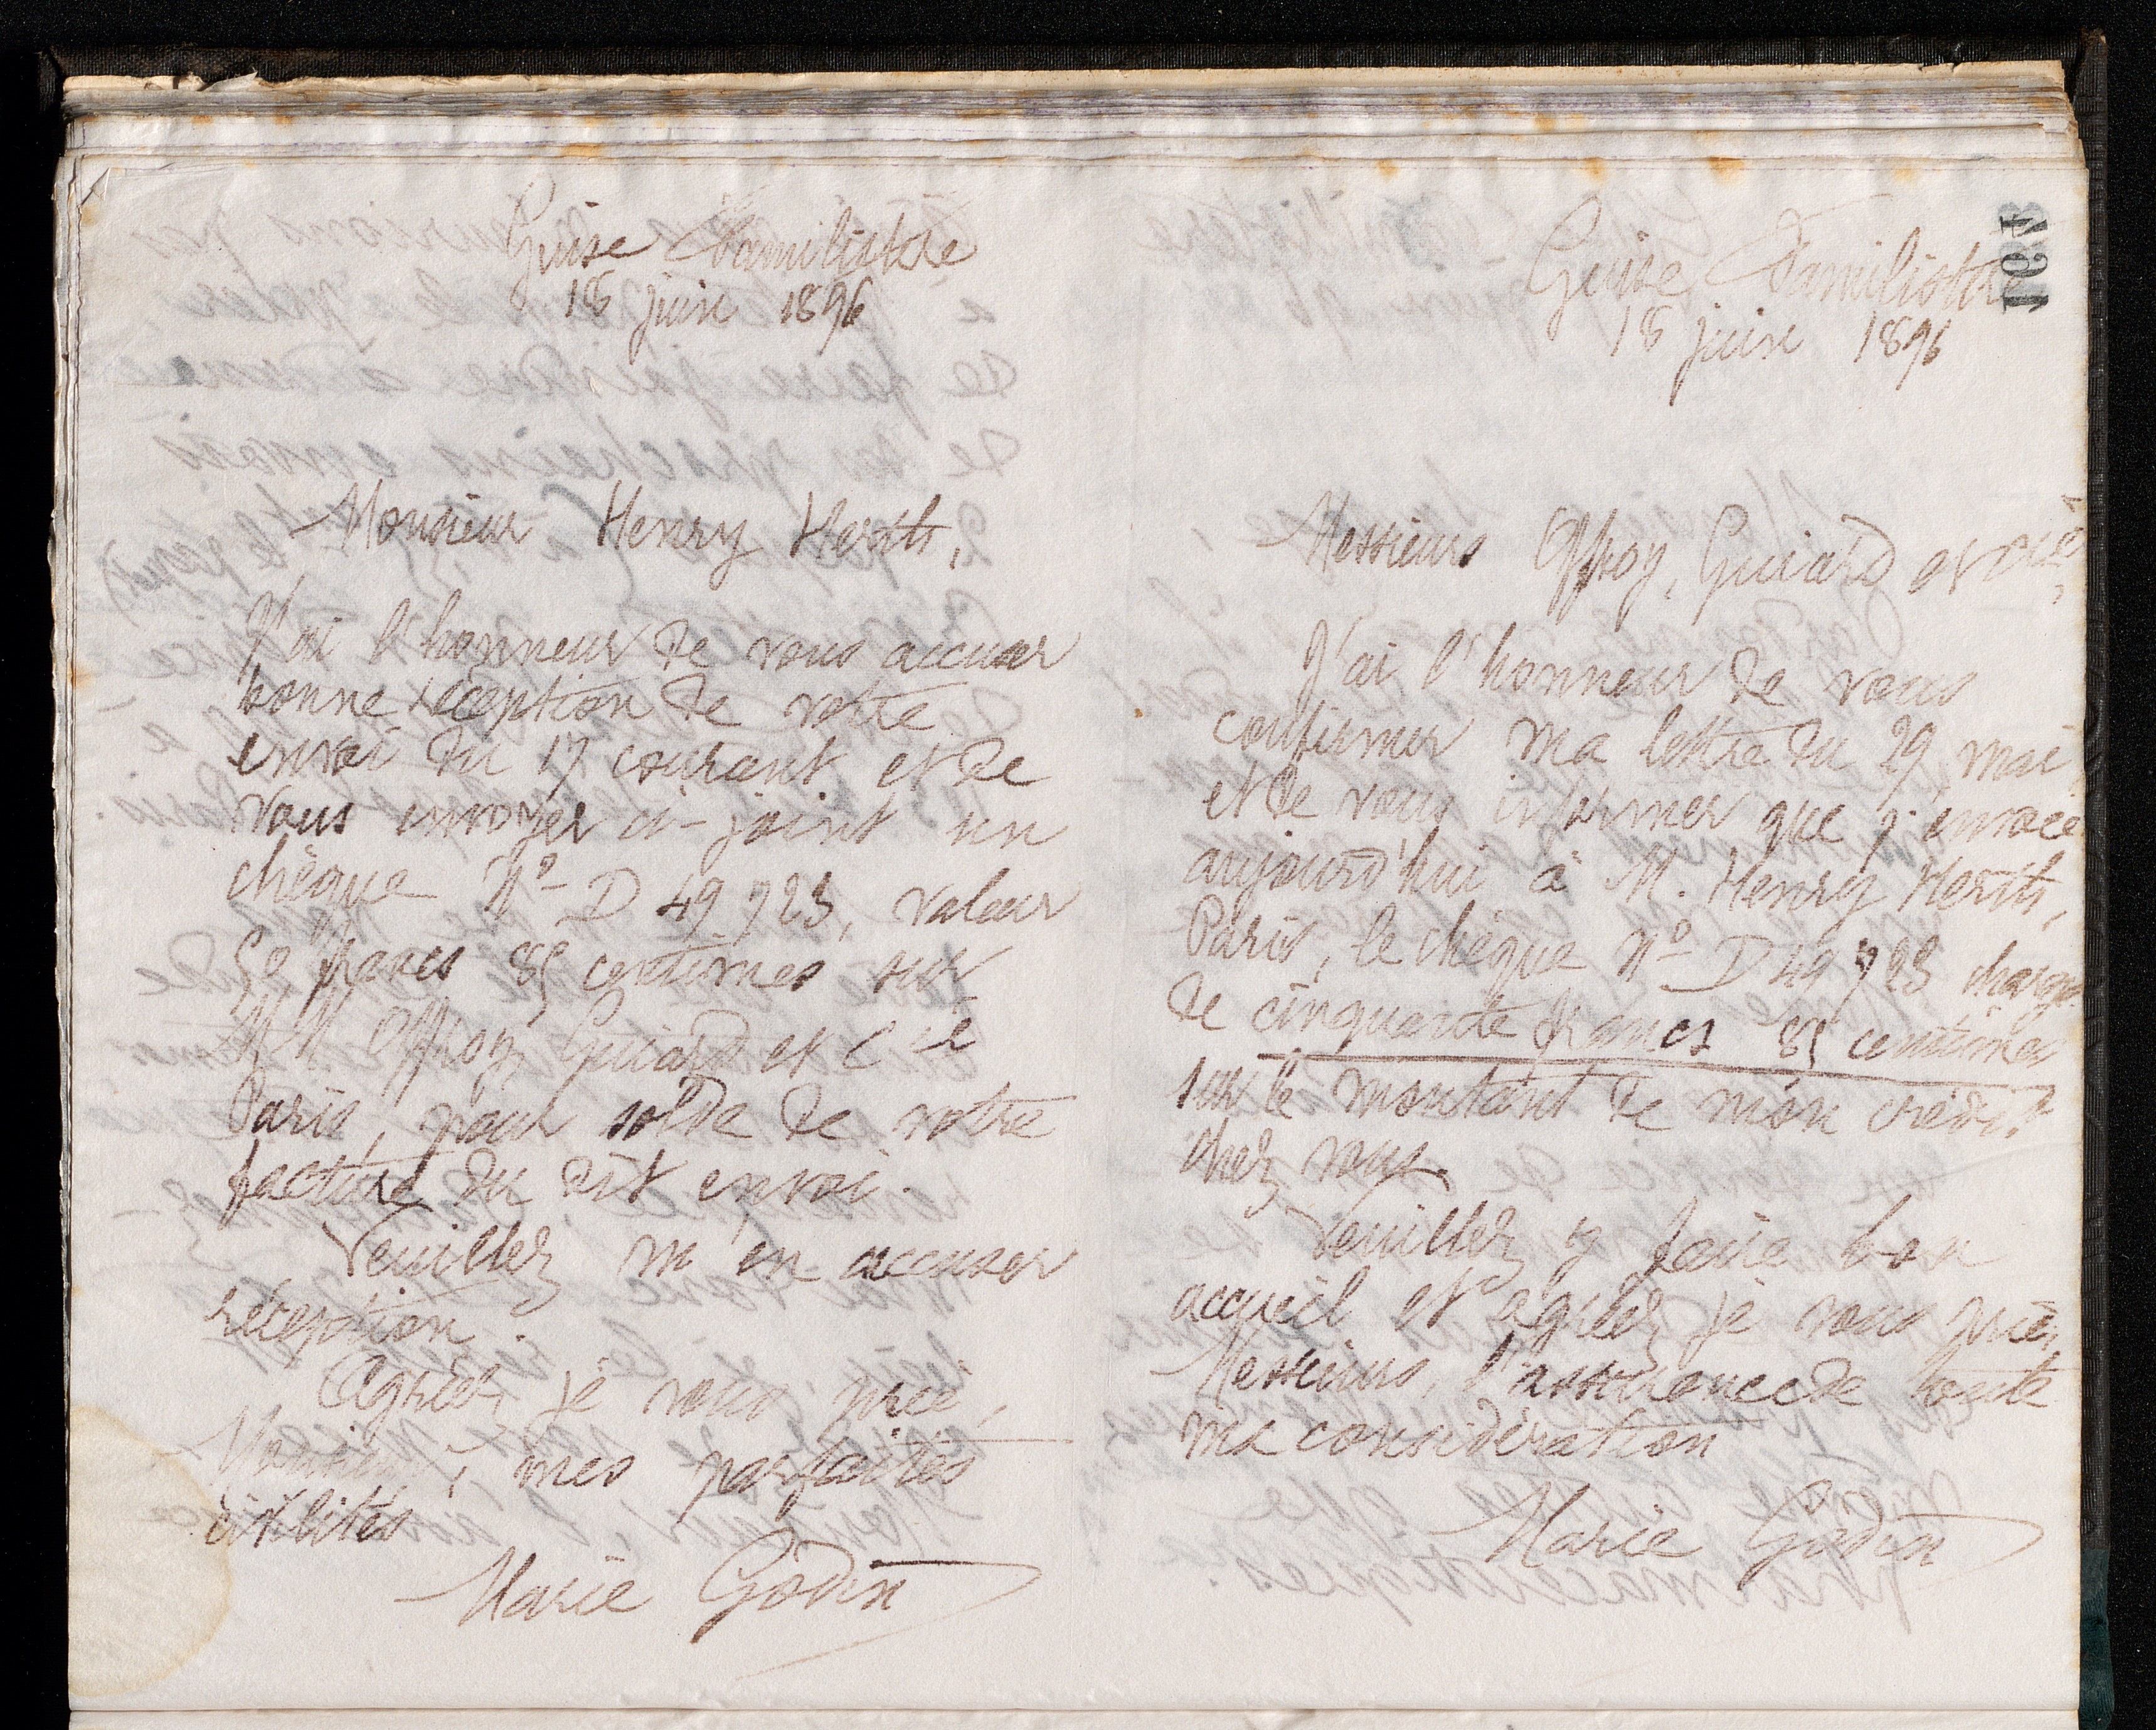 Guise Familistère
18 juin 1896
Monsieur Henry Herth,
J'ai l'honneur de vous accuser
bonne réception de votre
envoi du 17 courant et de
vous envoyer ci-joint un
chèque No D 49 923, valeur
50 francs 85 centimes sur
M M. Offroy, Guiard et Cie
Paris, pour solde de votre
facture du dit envoi.
Veuillez m'en accuser
réception.
Agréez, je vous prie,
Monsieur, mes parfaites
civilités
Marie Godin
194
Guise Familistère
18 juin 1896
Messieurs Offroy, Guiard et Cie,
J'ai l'honneur de vous
confirmer ma lettre du 29 mai
et de vous informer que j'envoie
aujourd'hui à M. Henry Herth,
Paris, le chèque No D 49 923 chargé
de cinquante francs 85 centimes
sur le montant de mon crédit
chez vous.
Veuillez y faire bon
accueil et agréez, je vous prie,
Messieurs, l'assurance de toute
ma considération
Marie Godin